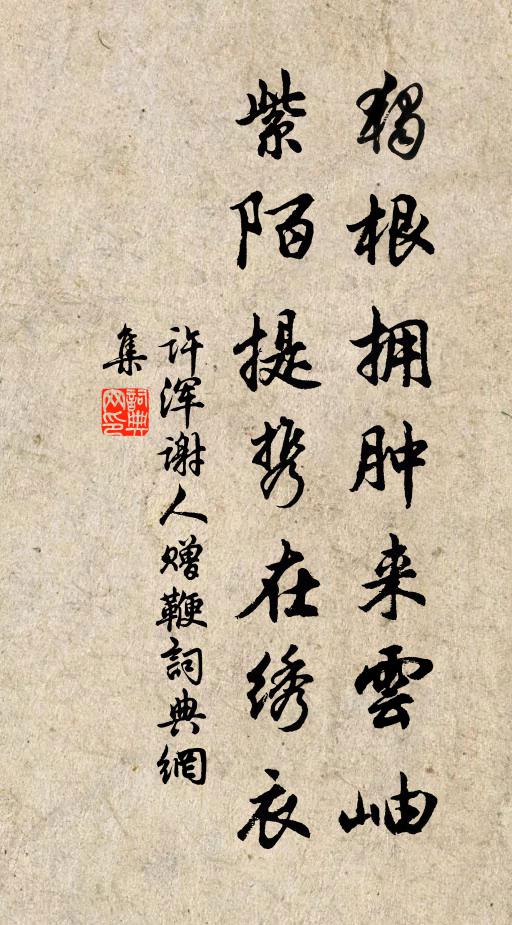 獨根拥肿来雲岫
紫陌提携在绣衣
许浑谢人赠鞭詞典網
集
詞典
网印